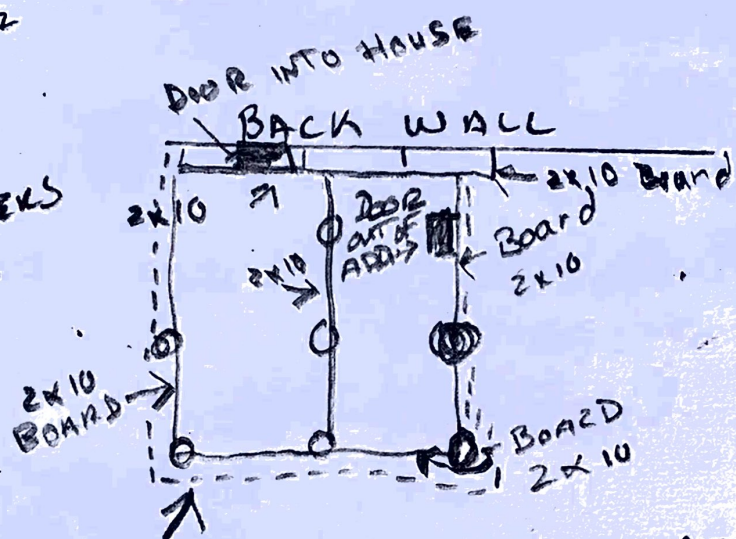 DOOR INTO HOUSE
BACK WALL
2x10 Board
2x10
DOOR
OUT OF
Board
2x10
2x10
2x10
BOARD
BOARD
2x10